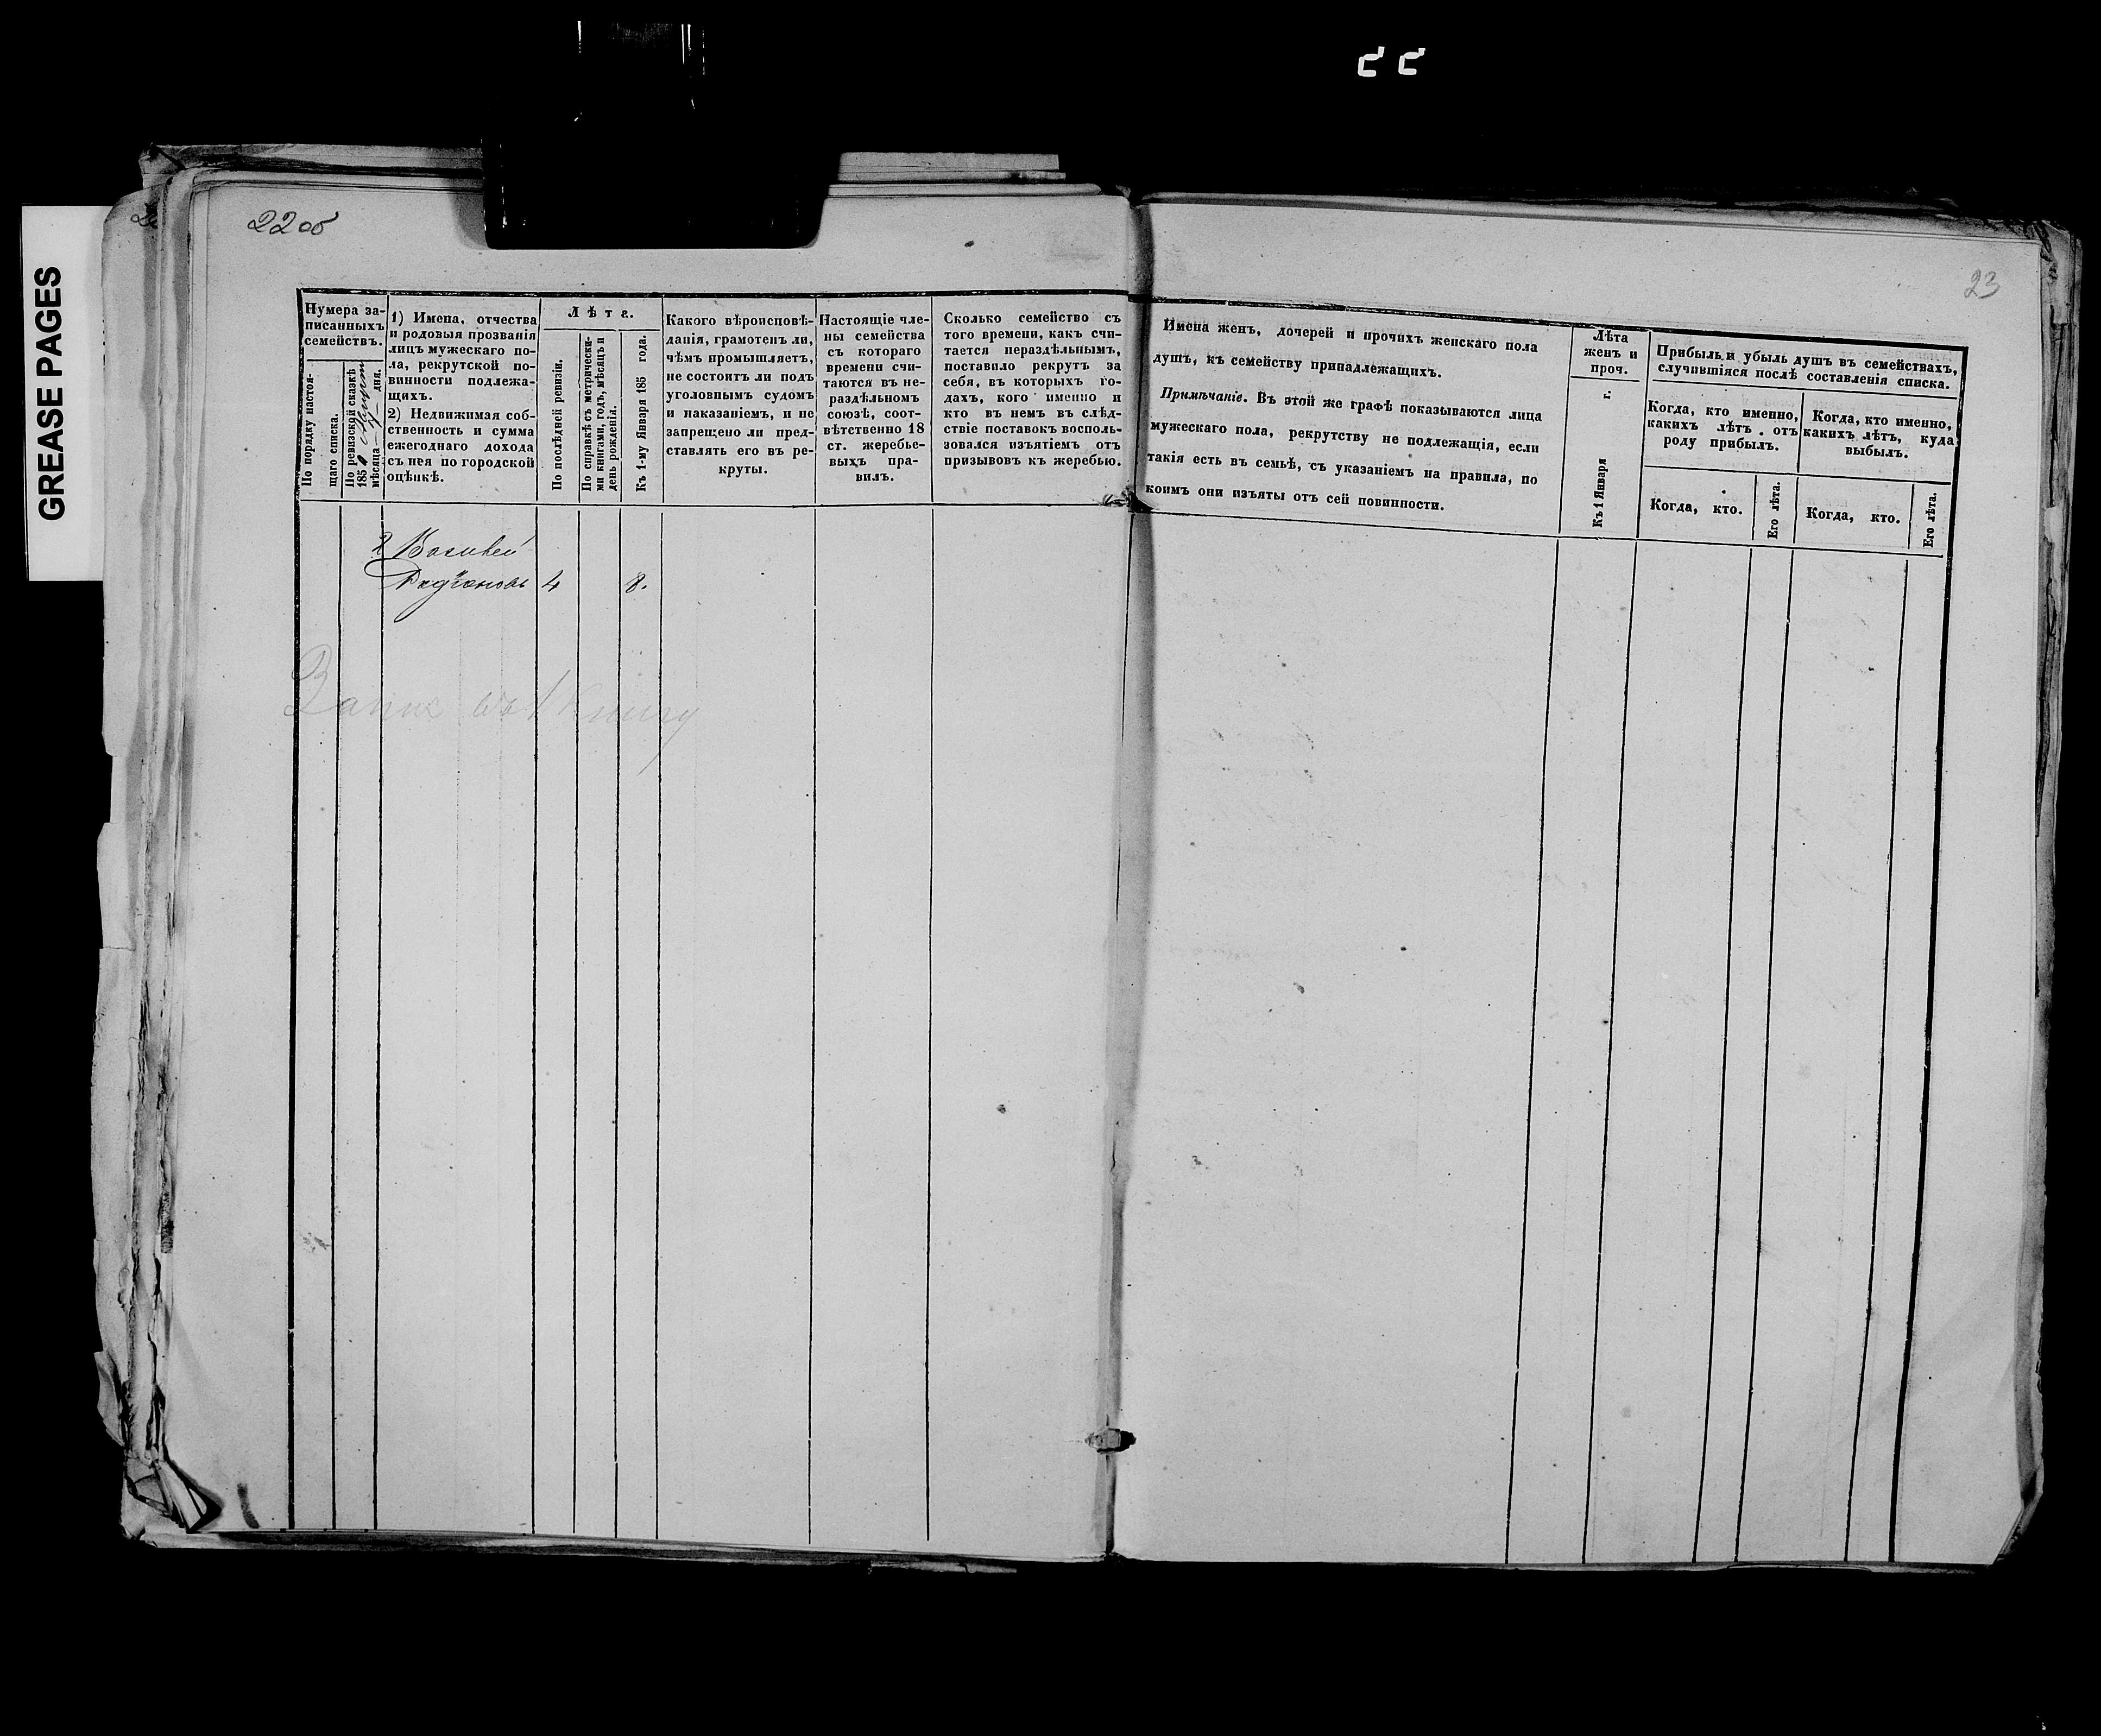 GREASE PAGES
22 об
23
Нумера за-
писанныхъ
семействъ.
По порядку настоя-
щаго списка.
По ревизской сказкѣ
185
мѣсяца
дня.
1) Имена, отчества
и родовыя прозванія
лицъ мужескаго по-
ла, рекрутской по-
винности подлежа-
щихъ.
2) Недвижимая соб-
ственность и сумма
ежегоднаго дохода
съ нея по городской
оцѣнкѣ.
Лѣта.
По послѣдней ревизіи.
По справкѣ съ метрически-
ми книгами, годъ, мѣсяцъ и
день рожденія.
Къ 1-му Января 185 года.
Какого вѣроисповѣ-
данія, грамотенъ ли,
чѣмъ промышляетъ,
не состоитъ ли подъ
уголовнымъ судомъ
и наказаніемъ, и не
запрещено ли пред-
ставлять его въ ре-
круты.
Настоящіе чле-
ны семейства
съ котораго
времени счи-
таются въ не-
раздѣльномъ
союзѣ, соот-
вѣтственно 18
ст. жеребье-
выхъ пра-
вилъ.
Сколько семейство съ
того времени, какъ счи-
тается нераздѣльнымъ,
поставило рекрутъ за
себя, въ которыхъ го-
дахъ, кого именно и
кто въ немъ въ слѣд-
ствіе поставокъ восполь-
зовался изъятіемъ отъ
призывовъ къ жеребью.
Имена женъ, дочерей и прочихъ женскаго пола
душъ, къ семейству принадлежащихъ.
Примѣчаніе. Въ этой же графѣ показываются лица
мужескаго пола, рекрутству не подлежащія, если
такія есть въ семьѣ, съ указаніемъ на правила, по
коимъ они изъяты отъ сей повинности.
Лѣта
женъ и
проч.
Къ 1 Января г.
Прибыль и убыль душъ въ семействахъ,
случившіяся послѣ составленія списка.
Когда, кто именно,
какихъ лѣтъ. отъ
роду прибылъ.
Когда, кто именно,
какихъ лѣтъ, куда
выбылъ.
Когда, кто.
Его лѣта.
Когда, кто.
Его лѣта.
2 Василей
Родіоновъ 4 8.
Запис въ 1 книгу